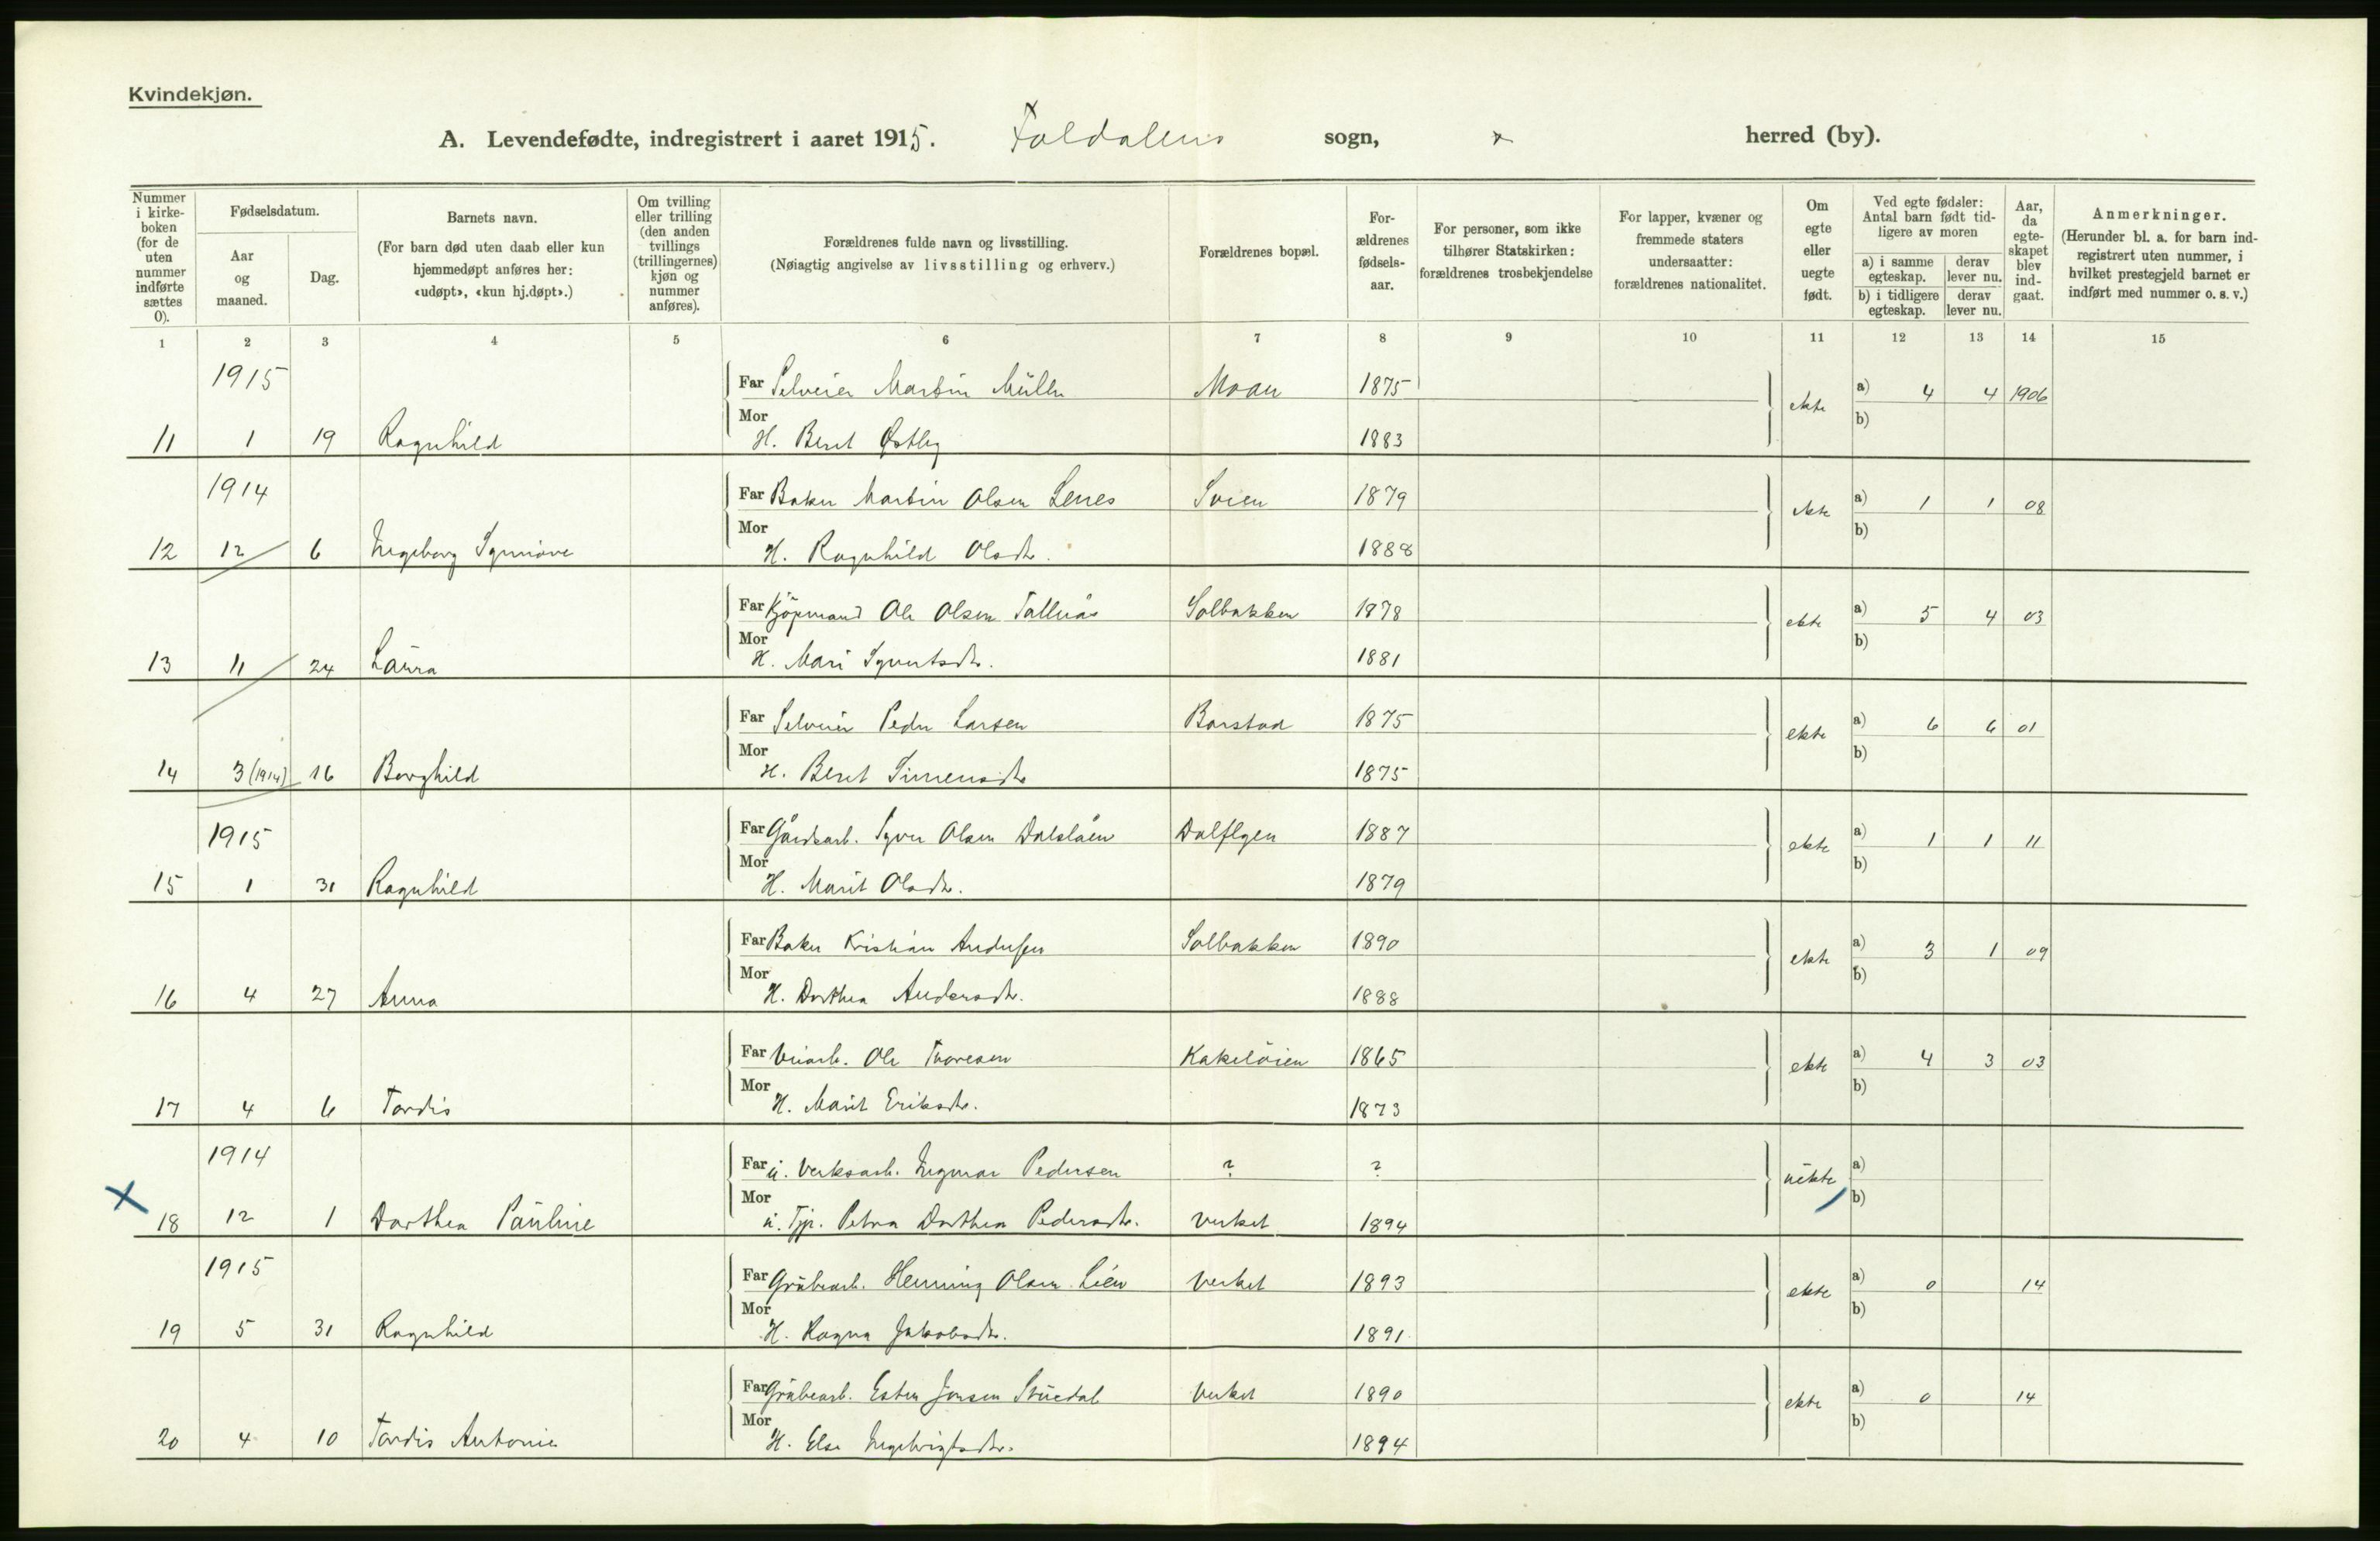 Kvindekjøn.
A. Levendefødte, indregistrert i aaret 1915. Foldalens sogn, herred (by).
Nummer i kirkeboken (for de uten nummer indførte sættes 0).
Fødselsdatum.
Aar og maaned.
Dag.
Barnets navn.
(For barn død uten daab eller kun hjemmedøpt anføres her: «udøpt», «kun hj.døpt».)
Om tvilling eller trilling (den anden tvillings (trillingernes) kjøn og nummer anføres).
Forældrenes fulde navn og livsstilling.
(Nøiagtig angivelse av livsstilling og erhverv.)
Forældrenes bopæl.
For-ældrenes fødsels-aar.
For personer, som ikke tilhører Statskirken: forældrenes trosbekjendelse
For lapper, kvæner og fremmede staters undersaatter: forældrenes nationalitet.
Om egte eller uegte født.
Ved egte fødsler: Antal barn født tid-ligere av moren
a) i samme egteskap. derav lever nu.
b) i tidligere egteskap. derav lever nu.
Aar, da egte-skapet blev ind-gaat.
Anmerkninger.
(Herunder bl. a. for barn ind-registrert uten nummer, i hvilket prestegjeld barnet er indført med nummer o. s. v.)
1 2 3 4 5 6 7 8 9 10 11 12 13 14 15
1915 Far Selveier Martin Müller Moan 1875 ekte a) 4 4 1906
11 1 19 Ragnhild Mor H. Beret Østby 1883 b)
1914 Far Baker Martin Olsen Lenes Svien 1879 ekte a) 1 1 08
12 12 6 Ingeborg Synnöve Mor H. Ragnhild Olsdtr. 1888 b)
Far Kjöpmand Ole Olsen Tallnäs Solbakken 1878 ekte a) 5 4 03
13 11 24 Laura Mor H. Mari Syvertsdtr. 1881 b)
Far Selveier Peder Larsen Borstad 1875 ekte a) 6 6 01
14 3 (1914) 16 Borghild Mor H. Beret Simensdtr 1875 b)
1915 Far Gårdsarb. Syver Olsen Dalslåen Dalflyen 1887 ekte a) 1 1 11
15 1 31 Ragnhild Mor H. Marit Olsdtr. 1879 b)
Far Baker Kristian Andersen Solbakken 1890 ekte a) 3 1 09
16 4 27 Anna Mor H. Dorthea Andersdtr. 1888 b)
Far Veiarb. Ole Thoresen Kakelöien 1865 ekte a) 4 3 03
17 4 6 Tordis Mor H. Marit Eriksdtr. 1873 b)
1914 Far u. Verksarb. Ingmar Pedersen ? ? uekte a)
x 18 12 1 Dorthea Pauline Mor u. Tjp. Petra Dorthea Pedersdtr. Verket 1894 b)
1915 Far Grubearb. Henning Olsen Lien Verket 1893 ekte a) 0 14
19 5 31 Ragnhild Mor H. Ragna Jakobsdtr. 1891 b)
Far Grubearb. Esten Jonsen Stuedal Verket 1890 ekte a) 0 14
20 4 10 Tordis Antonie Mor H. Else Ingebrigtsdtr. 1894 b)